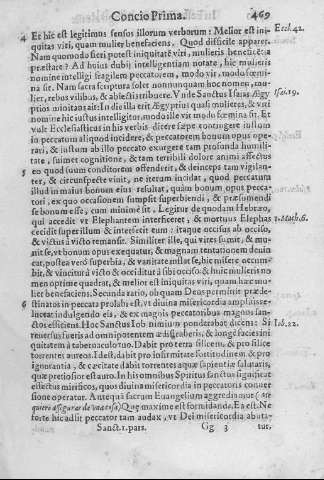 Concio Prima. 469
4 Et hic est legitimus sensus illorum verborum: Melior est ini- Eccl. 42.
quitas viri, quam mulier benefaciens. Quod difficile apparet.
Nam quomodo fieri potest iniquitas viri, mulieris benefici
præstare? Ad huius dubij intelligentiam notate, hic mulieris
nomine intelligi fragilem peccatorem, modo vir, modo fœmi-
na sit. Nam sacra scriptura solet nonnunquam hoc nomen, mu-
lier, rebus vilibus, & abiectis tribuere. Vnde Sanctus Isaias Isai. 19.
minitans ait: In die illa erit Ægyptus quasi mulieres, & viri
nomine hic iustus intelligitor. modo ille vir modo fœmina sit. Et
vult Ecclesiasticus in his verbis dicere sæpe contingere iustum
in peccatum aliquod incidere, & peccatorem bonum opus ope-
rari, & iustum ab illo peccato exurgere tam profunda humili-
tate, suimet cognitione, & tam terribili dolore animi affectus
5 eo quod suum conditorem offenderit, & deinceps tam vigilan-
ter, & circunspecte vivit, ne iterum incidat, quod peccatum
illud in maius bonum eius resultat, quàm bonum opus pecca-
tori, ex quo occasionem sumpsit superbiendi, & præsumendi
se bonum esse, cum minimè sit. Legitur de quodam Hebræo,
qui accedit vt Elephantem interficeret, & mortuus Elephas 1. Mach. 6.
cecidit super illum & interfecit eum: itaque occisus ab occiso,
& victus à victo remansit. Similiter ille, qui vires sumit, & mu-
nit se, vt bonum opus exequatur, & magnam tentationem devin-
cat, postea verò superbia, & vanitate inflatus, hic misere occum-
bit, & vincitur à victo & occiditur à sibi occiso. & huic mulieris no
men optime quadrat, & melior est iniquitas viri, quam hæc mu-
lier benefaciens. Secunda ratio, ob quam Deus permittit præde-
6 stinatos in peccata prolabi est, vt divina misericordia amplius re-
luceat indulgendo eis, & ex magnis peccatoribus magnos san-
ctos efficiens. Hoc Sanctus Iob nimium ponderabat dicens: Si Iob. 22.
reversus fueris ad omnipotentem ædificaberis, & longè facies ini
quitatem à tabernaculo tuo. Dabit pro terra silicem, & pro silice
torrentes aureos. Id est, dabit pro infirmitate fortitudinem & pro
ignorantia, & cæcitate dabit torrentes aquæ sapientiæ salutaris,
quæ pretiosior est auro. In his omnibus Spiritus Sanctus significat
effectus mirificos, quos divina misericordia in peccatoris conver
sione operatur. Ante quà sacrum Euangelium aggrediamur (me
quiero assegurar de vna cosa) Quæ maxime est formidanda. Ea est. Ne
forte hic adsit peccator tam audax, vt Dei misericordia abuta-
Sanct. 1. pars. Gg 3 tur.